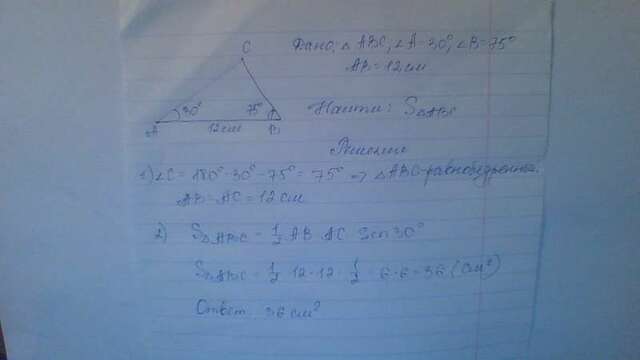 Дано: △ ABC, ∠A=30°, ∠B=75°
AB=12см
C
30°
75°
A
12см
B
Найти: S△ABC
Решение
1) ∠C = 180°-30°-75° = 75° => △ABC-равнобедренный.
AB=AC=12см
2) S△ABC = 1/2 AB·AC·Sin30°
S△ABC = 1/2·12·12·1/2 = 6·6=36(см²)
Ответ: 36см²